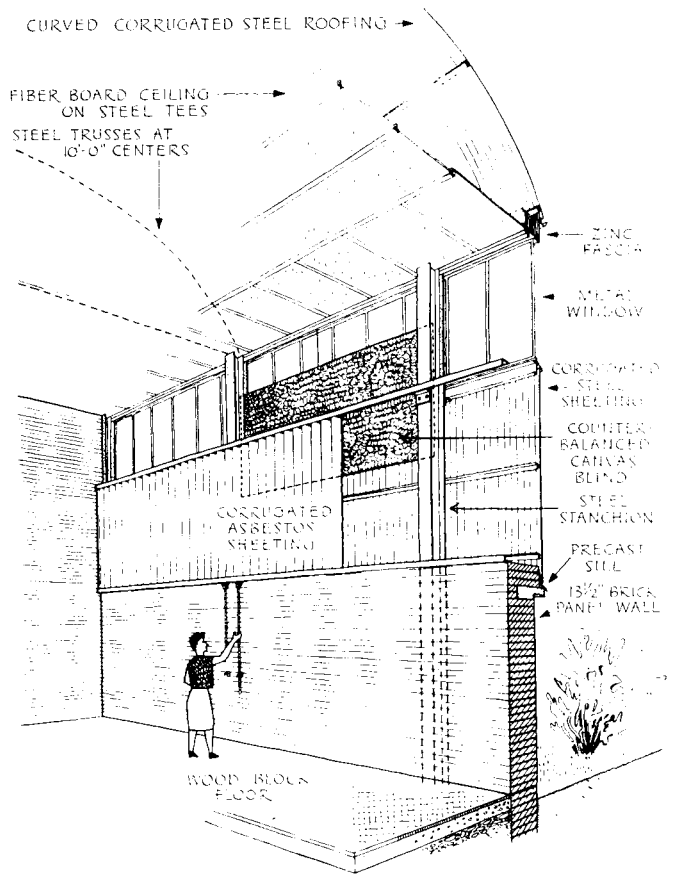 CURVED CORRUGATED STEEL ROOFING
FIBER BOARD CEILING
ON STEEL TEES
STEEL TRUSSES AT
10'-0" CENTERS
ZINC
FASCIA
METAL
WINDOW
CORRUGATED
STEEL
SHEETING
COUNTER-
BALANCED
CANVAS
BLIND
CORRUGATED
ASBESTOS
SHEETING
STEEL
STANCHION
PRECAST
SILL
13½" BRICK
PANEL WALL
WOOD BLOCK
FLOOR